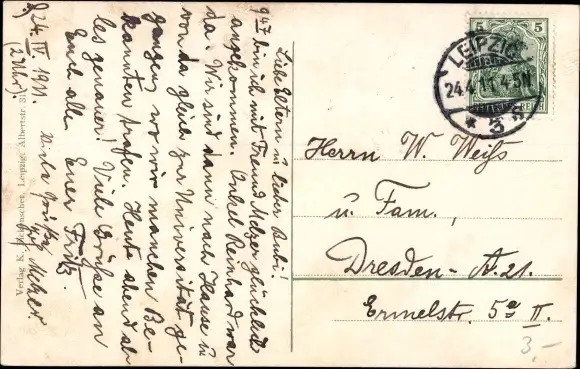 L., 24. IV. 1911.
(2 Uhr).
Liebe Eltern u. lieber Bubi!
9 47 bin ich mit Freund Melzer glücklich
angekommen. Onkel Reinhard war
da. Wir sind dann nach Hause u.
von da gleich zur Universität ge-
gangen, wo wir manchen Be-
kannten trafen. Heute abend
les genauer! Viele Grüße an
Euch alle Euer Fritz.
Viele Grüße
Melzer
Verlag K. Leipzig, Albertstr. 31
5 5
REICH
LEIPZIG
24.4.11.4-5N
* 3
Herrn W. Weiß
u. Fam.,
Dresden-A. 21.
Ermelstr. 5a II.
3,-